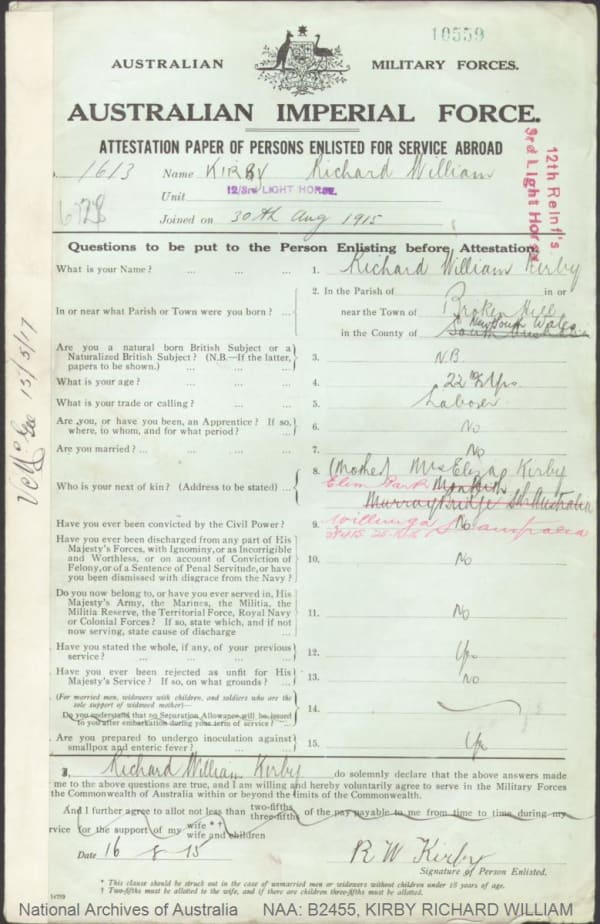 10559
AUSTRALIAN MILITARY FORCES.
AUSTRALIAN IMPERIAL FORCE.
ATTESTATION PAPER OF PERSONS ENLISTED FOR SERVICE ABROAD
1613 Name KIRBY Richard William
Unit 12/3rd LIGHT HORSE.
Joined on 30th Aug 1915
12th Reinf's
3rd Light Horse
Questions to be put to the Person Enlisting before Attestation.
What is your Name? ... ... ... 1. Richard William Kirby
In or near what Parish or Town were you born? ... 2. In the Parish of in or
near the Town of Broken Hill
in the County of New South Wales South Australia
Are you a natural born British Subject or a
Naturalized British Subject? (N.B.—If the latter,
papers to be shown.) ... ... 3. N.B.
What is your age? ... ... ... 4. 22 Yrs
What is your trade or calling? ... ... 5. Laborer
Are you, or have you been, an Apprentice? If so,
where, to whom, and for what period? ... 6. No
Are you married? ... ... ... 7. No
Who is your next of kin? (Address to be stated) ... 8. (Mother) Mrs Eliza Kirby
Elim Park
Murray Bridge Sth Australia
Willunga S Australia
Have you ever been convicted by the Civil Power? 9. No
Have you ever been discharged from any part of His
Majesty's Forces, with Ignominy, or as Incorrigible
and Worthless, or on account of Conviction of
Felony, or of a Sentence of Penal Servitude, or have
you been dismissed with disgrace from the Navy? 10. No
Do you now belong to, or have you ever served in, His
Majesty's Army, the Marines, the Militia, the
Militia Reserve, the Territorial Force, Royal Navy
or Colonial Forces? If so, state which, and if not
now serving, state cause of discharge ... 11. No
Have you stated the whole, if any, of your previous
service? ... ... ... 12. Yes
Have you ever been rejected as unfit for His
Majesty's Service? If so, on what grounds? ... 13. No
(For married men, widowers with children, and soldiers who are the
sole support of widowed mother)—
Do you understand that no Separation Allowance will be issued
to you after embarkation during your term of service? 14.
Are you prepared to undergo inoculation against
smallpox and enteric fever? ... ... 15. Yes
I, Richard William Kirby do solemnly declare that the above answers made
me to the above questions are true, and I am willing and hereby voluntarily agree to serve in the Military Forces
the Commonwealth of Australia within or beyond the limits of the Commonwealth.
And I further agree to allot not less than two-fifths three-fifths of the pay payable to me from time to time during my
rvice for the support of my wife *† wife and children
Date 16 8 15 R W Kirby
Signature of Person Enlisted.
* This clause should be struck out in the case of unmarried men or widowers without children under 18 years of age.
† Two-fifths must be allotted to the wife, and if there are children three-fifths must be allotted.
National Archives of Australia NAA: B2455, KIRBY RICHARD WILLIAM